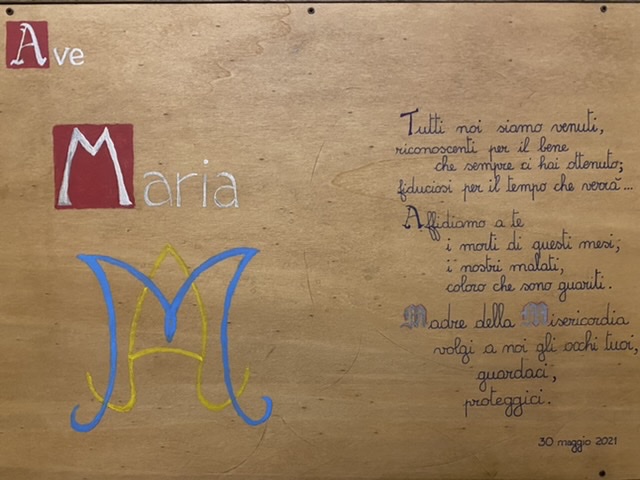 Ave
Maria
Tutti noi siamo venuti,
riconoscenti per il bene
che sempre ci hai ottenuto;
fiduciosi per il tempo che verrà...
Affidiamo a te
i morti di questi mesi,
i nostri malati,
coloro che sono guariti.
Madre della Misericordia
volgi a noi gli occhi tuoi,
guardaci,
proteggici.
30 maggio 2021